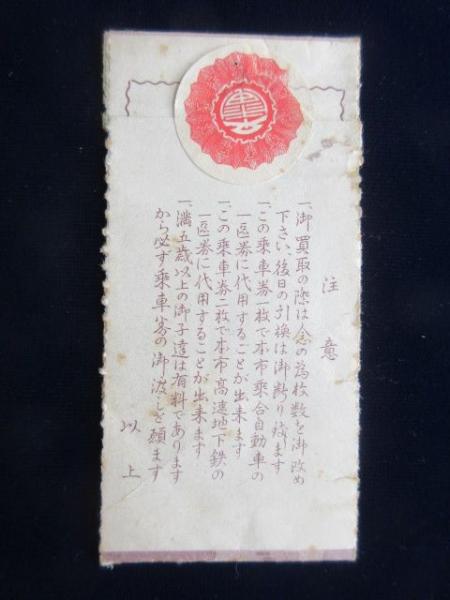 注意
一、御買取の際は念の為枚数を御改め
下さい、後日の引換は御断り致します
一、この乗車券一枚で本市乗合自動車の
一区券に代用することが出来ます
一、この乗車券二枚で本市高速地下鉄の
一区券に代用することが出来ます
一、満五歳以上の御子達は有料であります
から必ず乗車券の御渡しを願ます
以上